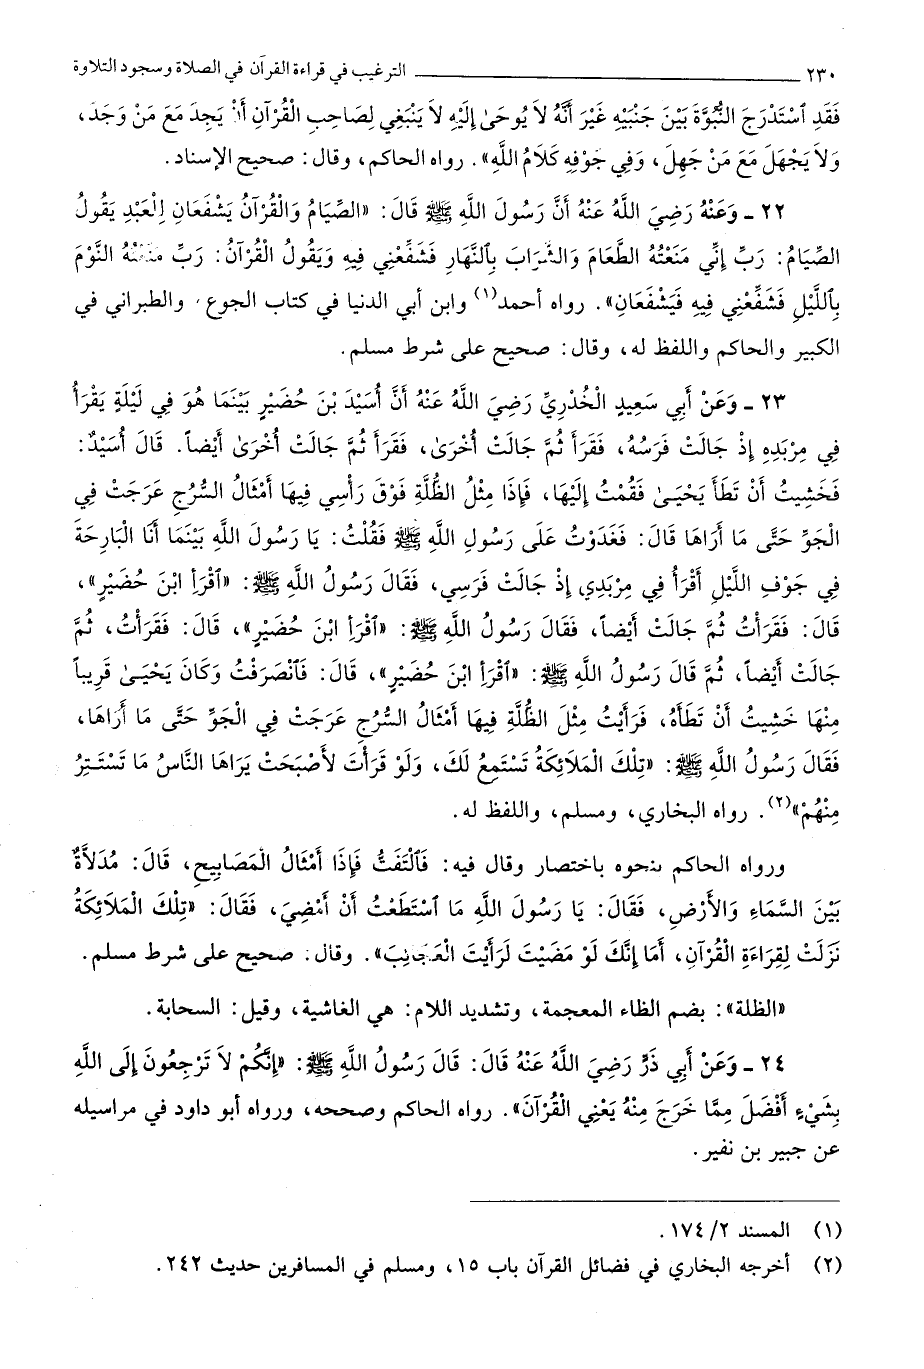 ٢٣٠ ــــــــــــــــــــ الترغيب في قراءة القرآن في الصلاة وسجود التلاوة
فَقَدِ ٱسْتَدْرَجَ النُّبُوَّةَ بَيْنَ جَنْبَيْهِ غَيْرَ أَنَّهُ لَا يُوحَىٰ إِلَيْهِ لَا يَنْبَغِي لِصَاحِبِ الْقُرْآنِ أَنْ يَجِدَ مَعَ مَنْ وَجَدَ،
وَلَا يَجْهَلَ مَعَ مَنْ جَهِلَ، وَفِي جَوْفِهِ كَلَامُ اللَّهِ». رواه الحاكم، وقال: صحيح الإسناد.
٢٢ ـ وَعَنْهُ رَضِيَ اللَّهُ عَنْهُ أَنَّ رَسُولَ اللَّهِ ﷺ قَالَ: «الصِّيَامُ وَالْقُرْآنُ يَشْفَعَانِ لِلْعَبْدِ يَقُولُ
الصِّيَامُ: رَبِّ إِنِّي مَنَعْتُهُ الطَّعَامَ وَالشَّرَابَ بِٱلنَّهَارِ فَشَفِّعْنِي فِيهِ وَيَقُولُ الْقُرْآنُ: رَبِّ مَنَعْتُهُ النَّوْمَ
بِٱللَّيْلِ فَشَفِّعْنِي فِيهِ فَيَشْفَعَانِ». رواه أحمد(١) وابن أبي الدنيا في كتاب الجوع، والطبراني في
الكبير والحاكم واللفظ له، وقال: صحيح على شرط مسلم.
٢٣ ـ وَعَنْ أَبِي سَعِيدٍ الْخُدْرِيِّ رَضِيَ اللَّهُ عَنْهُ أَنَّ أُسَيْدَ بْنَ حُضَيْرٍ بَيْنَمَا هُوَ فِي لَيْلَةٍ يَقْرَأُ
فِي مِرْبَدِهِ إِذْ جَالَتْ فَرَسُهُ، فَقَرَأَ ثُمَّ جَالَتْ أُخْرَىٰ، فَقَرَأَ ثُمَّ جَالَتْ أُخْرَىٰ أَيْضاً. قَالَ أُسَيْدٌ:
فَخَشِيتُ أَنْ تَطَأَ يَحْيَىٰ فَقُمْتُ إِلَيْهَا، فَإِذَا مِثْلُ الظُّلَّةِ فَوْقَ رَأْسِي فِيهَا أَمْثَالُ السُّرُجِ عَرَجَتْ فِي
الْجَوِّ حَتَّى مَا أَرَاهَا قَالَ: فَغَدَوْتُ عَلَى رَسُولِ اللَّهِ ﷺ فَقُلْتُ: يَا رَسُولَ اللَّهِ بَيْنَمَا أَنَا الْبَارِحَةَ
فِي جَوْفِ اللَّيْلِ أَقْرَأُ فِي مِرْبَدِي إِذْ جَالَتْ فَرَسِي، فَقَالَ رَسُولُ اللَّهِ ﷺ: «ٱقْرَأِ ابْنَ حُضَيْرٍ»،
قَالَ: فَقَرَأْتُ ثُمَّ جَالَتْ أَيْضاً، فَقَالَ رَسُولُ اللَّهِ ﷺ: «ٱقْرَأِ ابْنَ حُضَيْرٍ»، قَالَ: فَقَرَأْتُ، ثُمَّ
جَالَتْ أَيْضاً، ثُمَّ قَالَ رَسُولُ اللَّهِ ﷺ: «ٱقْرَأِ ابْنَ حُضَيْرٍ»، قَالَ: فَٱنْصَرَفْتُ وَكَانَ يَحْيَىٰ قَرِيباً
مِنْهَا خَشِيتُ أَنْ تَطَأَهُ، فَرَأَيْتُ مِثْلَ الظُّلَّةِ فِيهَا أَمْثَالُ السُّرُجِ عَرَجَتْ فِي الْجَوِّ حَتَّى مَا أَرَاهَا،
فَقَالَ رَسُولُ اللَّهِ ﷺ: «تِلْكَ الْمَلَائِكَةُ تَسْتَمِعُ لَكَ، وَلَوْ قَرَأْتَ لأَصْبَحَتْ يَرَاهَا النَّاسُ مَا تَسْتَتِرُ
مِنْهُمْ»(٢). رواه البخاري، ومسلم، واللفظ له.
ورواه الحاكم بنحوه باختصار وقال فيه: فَٱلْتَفَتُّ فَإِذَا أَمْثَالُ الْمَصَابِيحِ، قَالَ: مُدَلاَّةٌ
بَيْنَ السَّمَاءِ وَالأَرْضِ، فَقَالَ: يَا رَسُولَ اللَّهِ مَا ٱسْتَطَعْتُ أَنْ أَمْضِيَ، فَقَالَ: «تِلْكَ الْمَلَائِكَةُ
نَزَلَتْ لِقِرَاءَةِ الْقُرْآنِ، أَمَا إِنَّكَ لَوْ مَضَيْتَ لَرَأَيْتَ الْعَجَائِبَ». وقال: صحيح على شرط مسلم.
«الظلة»: بضم الظاء المعجمة، وتشديد اللام: هي الغاشية، وقيل: السحابة.
٢٤ ـ وَعَنْ أَبِي ذَرٍّ رَضِيَ اللَّهُ عَنْهُ قَالَ: قَالَ رَسُولُ اللَّهِ ﷺ: «إِنَّكُمْ لَا تَرْجِعُونَ إِلَى اللَّهِ
بِشَيْءٍ أَفْضَلَ مِمَّا خَرَجَ مِنْهُ يَعْنِي الْقُرْآنَ». رواه الحاكم وصححه، ورواه أبو داود في مراسيله
عن جبير بن نفير.
(١) المسند ٢/ ١٧٤.
(٢) أخرجه البخاري في فضائل القرآن باب ١٥، ومسلم في المسافرين حديث ٢٤٢.